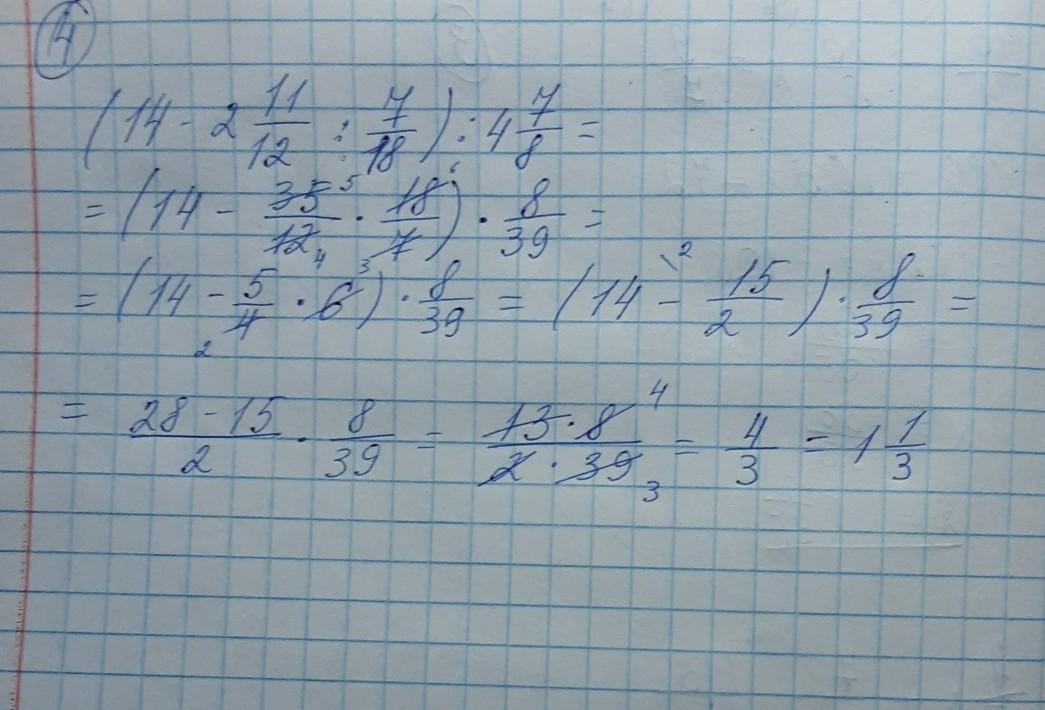 4
(14 - 2 11/12 : 7/18) : 4 7/8 =
= (14 - 35 5/12 4 · 18 6/7) · 8/39 =
= (14 - 5/4 2 · 6 3) · 8/39 = (14 \2 - 15/2) · 8/39 =
= 28 - 15/2 · 8/39 = 13 · 8 4/2 · 39 3 = 4/3 = 1 1/3